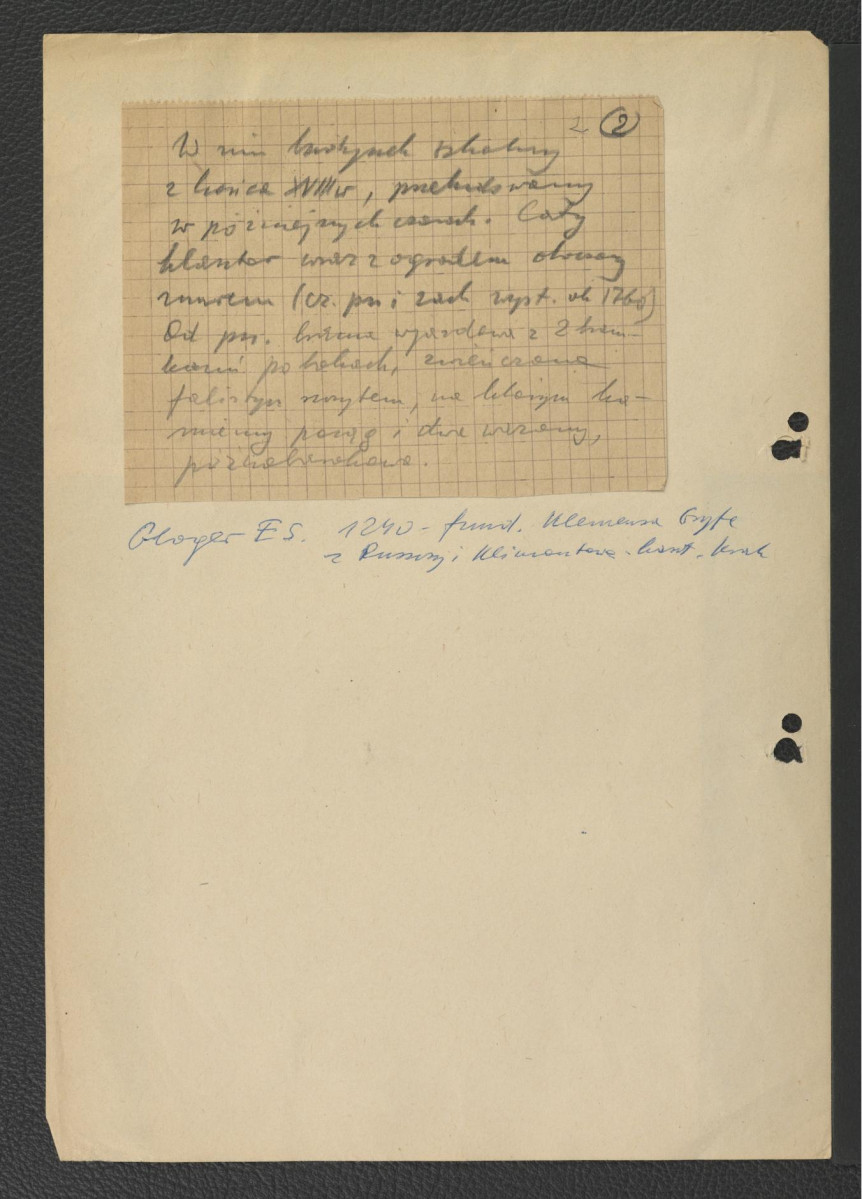 2 (2)
W nim budynek szkolny
z końca XVIII w, przebudowany
w późniejszych czasach. Cały
klasztor wraz z ogrodem otoczony
murem (cz. pn i zach wyst. ok 1760)
Od pn. brama wjazdowa z 2 bram-
kami po bokach, zwieńczona
falistym szczytem, na którym ka-
mienny posąg i dwa wazony,
późnobarokowa.
Gloger E S. 1240 - fund. Klemensa Gryfa
z Ruszczy i Klimontowa - kaszt. krak